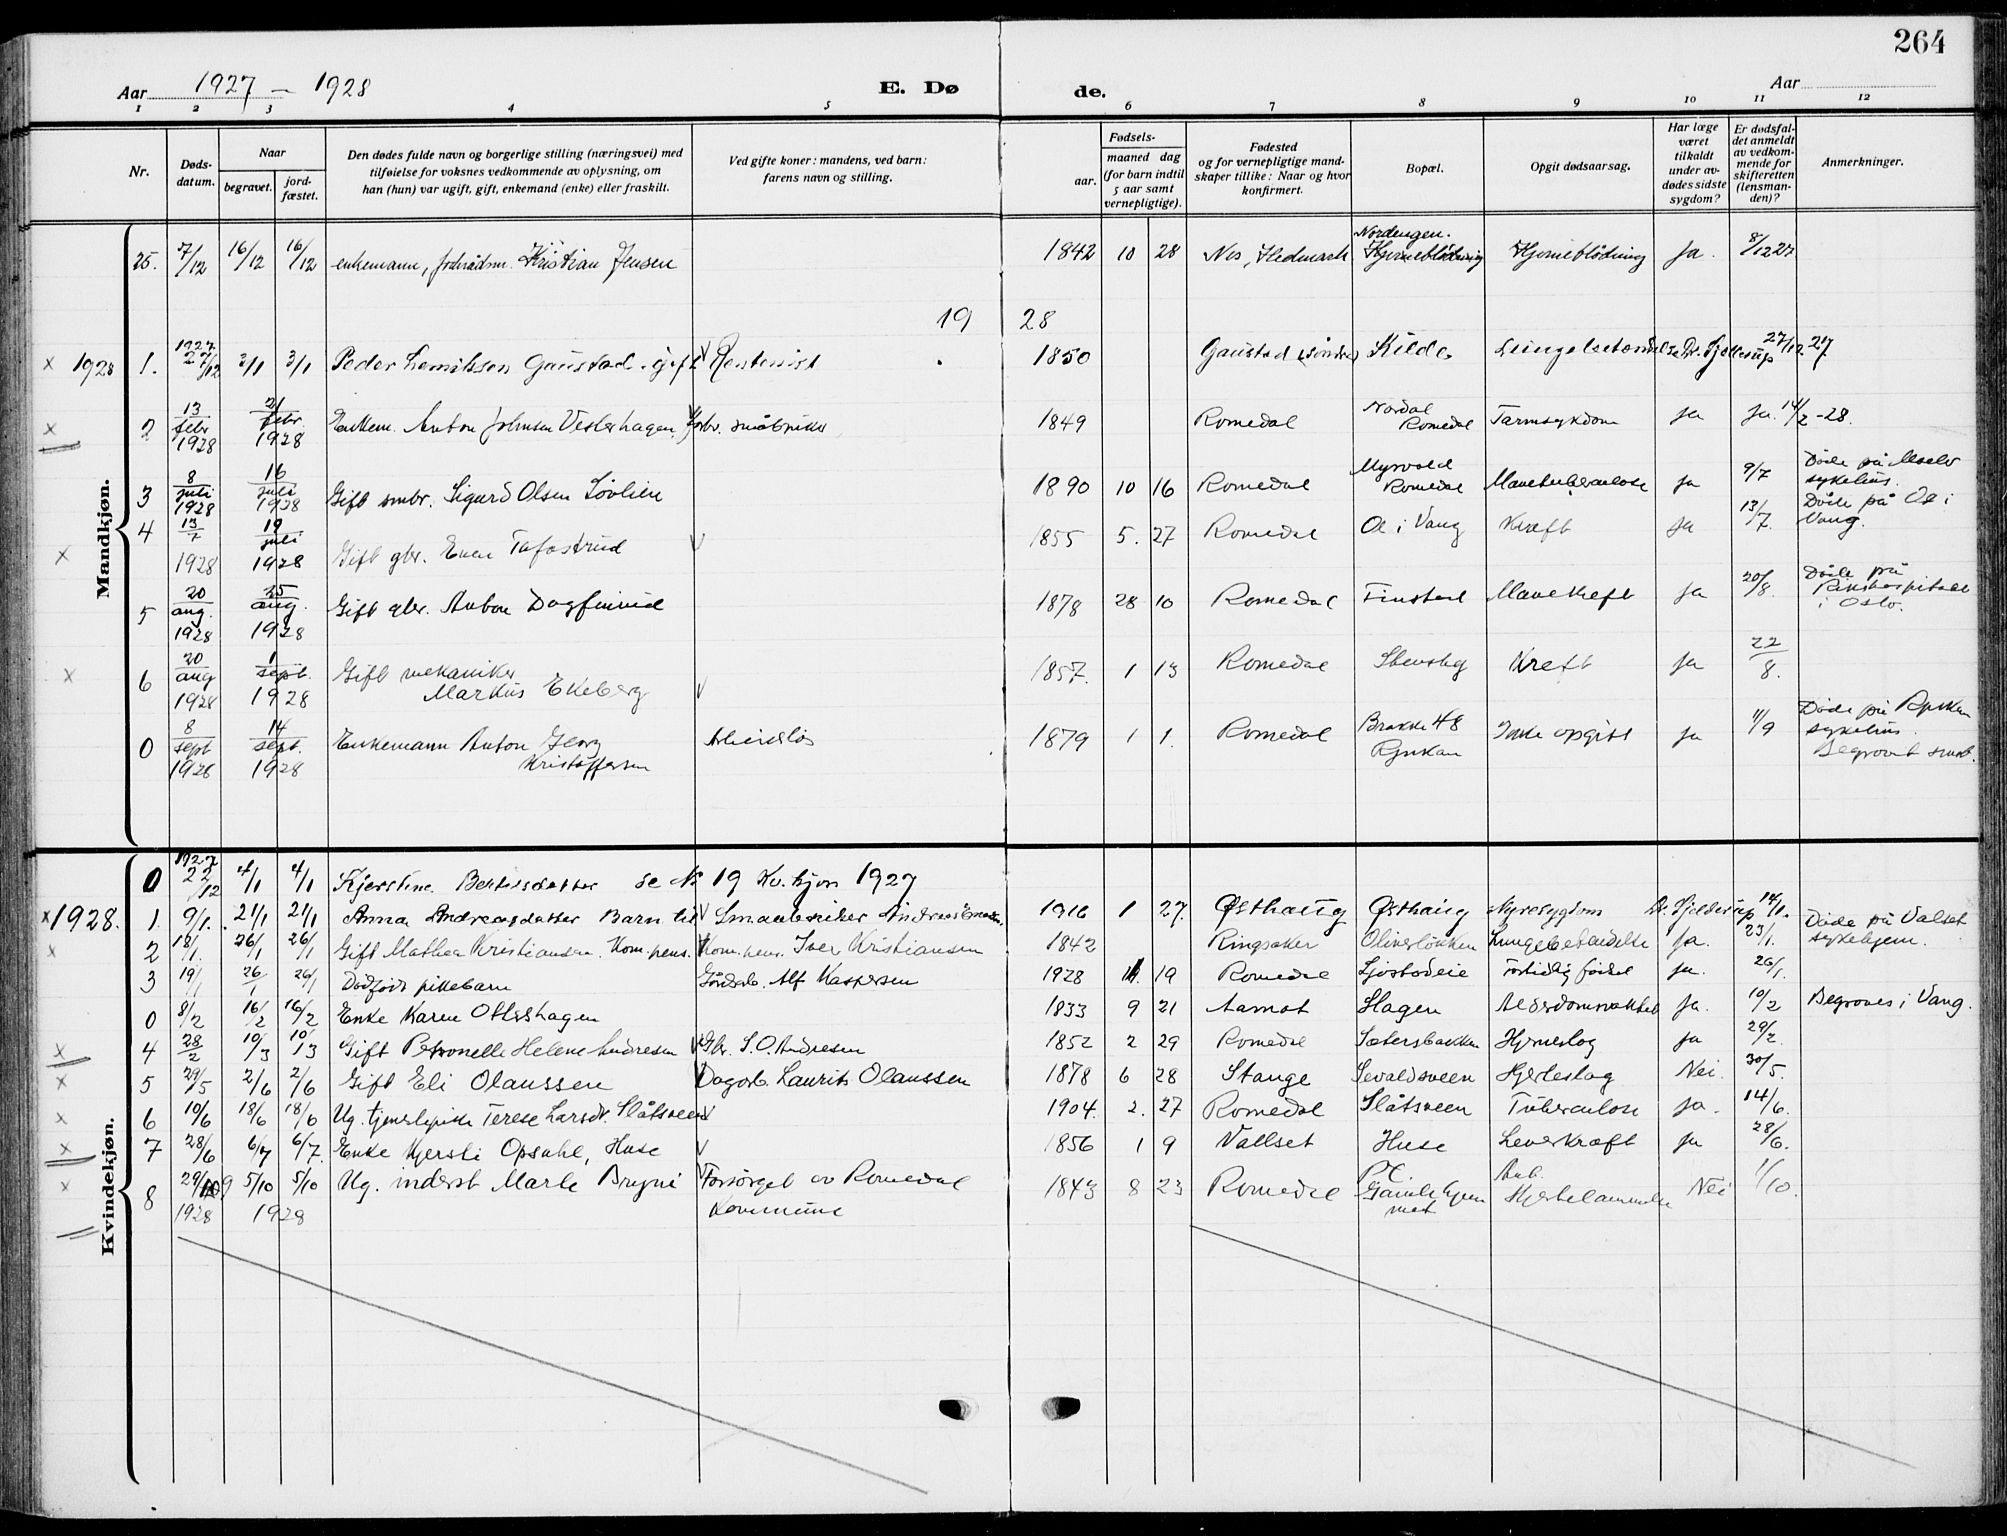 264
Aar 1927 – 1928 E. Dø de. Aar
1 2 3 4 5 6 7 8 9 10 11 12
Nr. Døds-datum. Naar begravet. jord-fæstet. Den dødes fulde navn og borgerlige stilling (næringsvei) med tilføielse for voksnes vedkommende av oplysning, om han (hun) var ugift, gift, enkemand (enke) eller fraskilt. Ved gifte koner: mandens, ved barn: farens navn og stilling. Fødsels- aar. maaned dag (for barn indtil 5 aar samt vernepligtige). Fødested og for vernepligtige mand-skaper tillike: Naar og hvor konfirmert. Bopæl. Opgit dødsaarsag. Har læge været tilkaldt under av-dødes sidste sygdom? Er dødsfal-det anmeldt av vedkom-mende for skifteretten (lensman-den)? Anmerkninger.
Mandkjøn.
25. 7/12 16/12 16/12 enkemann, Kristian Jensen 1842 10 28 Nes, Hedmark Nordengen. Hjerneblødning Hjerneblødning Ja. 8/12 27
19 28
x 1928 1. 1927 27/12 3/1 3/1 Peder Gaustad. gift Rentenist 1850 Gaustad (søndre) Kilde 27/12 27
x 2 13 febr 1928 21 febr. 1928 Enkem. Anton Johnsen Vesterhagen, småbruker 1849 Romedal Nordal Romedal Tarmsykdom ja ja. 14/2 -28.
3 8 juli 1928 16 juli 1928 Gift smbr. Sigurd Olsen Løvlien 1890 10 16 Romedal Myrvold Romedal Mavetuberculose ja 9/7 Døde på sykehus.
x 4 13/7 1928 19 juli 1928 Gift gbr. Even Tafastrud V 1855 5. 27 Romedal i Vang Kræft ja 13/7. Døde på i Vang.
5 20 aug. 1928 25 aug. 1928 Gift gbr. Anton Dagfinrud 1878 28 10 Romedal Finstad Mavekreft ja 20/8. Døde på Rikshospitalet i Oslo.
x 6 20 aug 1928 1 sept. 1928 Gift mekaniker Markus Ekeberg V 1857. 1 13 Romedal Stensby Kreft ja 22/8.
0 8 sept 1928 14 sept. 1928 Enkemann Anton Georg Kristoffersen Arbeidsløs 1879 1 1. Romedal Brakke 48 Rjukan Ikke opgitt ja 11/9 Døde på Rjukan sykehus. Begravet
Kvindekjøn.
0 1927 22/12 4/1 4/1 Kjerstine Bertilsdatter se No 19 Kv. kjøn 1927
x 1928. 1. 9/1. 21/1 21/1 Anna Andreasdatter Barn til V Smaabruker 1916 1 27. Østhaug Østhaug Nyresygdom Dr. Hjelderup 14/1. Døde på Valset sykehjem.
x 2 18/1. 26/1 26/1 Gift Mathea Kristiansen. Kom. pens. Kom. pens. Iver Kristiansen 1842 Ringsaker Oliverløkken Lungebetendelse Ja. 23/1.
3 19/1 26/1 26/1 Dødfødt pikebarn Gårdsarb. Alf Kaspersen 1928 1. 19 Romedal Ljøstadeie Fortidlig fødsel ja. 26/1.
0 8/2 16/2 16/2 Enke Karen Ottershagen 1833 9 21 Aamot Hagen Ja. 10/2 Begraves i Vang.
x 4 28/2 10/3 10/3 Gift Petronelle Helene Andresen V Gbr. S. O. Andresen 1852 2 29 Romedal Sætersbakken Hjerneslag ja 29/2.
x 5 29/5 2/6 2/6 Gift Eli Olaussen Dagarb. Laurits Olaussen 1878 6 28 Stange Sevaldsveen Hjerteslag Nei. 30/5.
x 6 10/6 18/6 18/6 Ug. tjenestepike Terese Larsdr. Slåtsveen V 1904. 2. 27 Romedal Slåtsveen Tuberculose ja. 14/6.
x 7 28/6 6/7 6/7. Enke Kjersti Opsahl, Huse V 1856 1 9 Vallset Huse Leverkræft ja 28/6.
x 8 29/9 1928 5/10 5/10 1928 Ug. inderst Marte Bryni V Forsørget av Romedal Kommune 1843 8 23 Romedal Gamlehjemmet Hjertelammelse Nei 1/10.